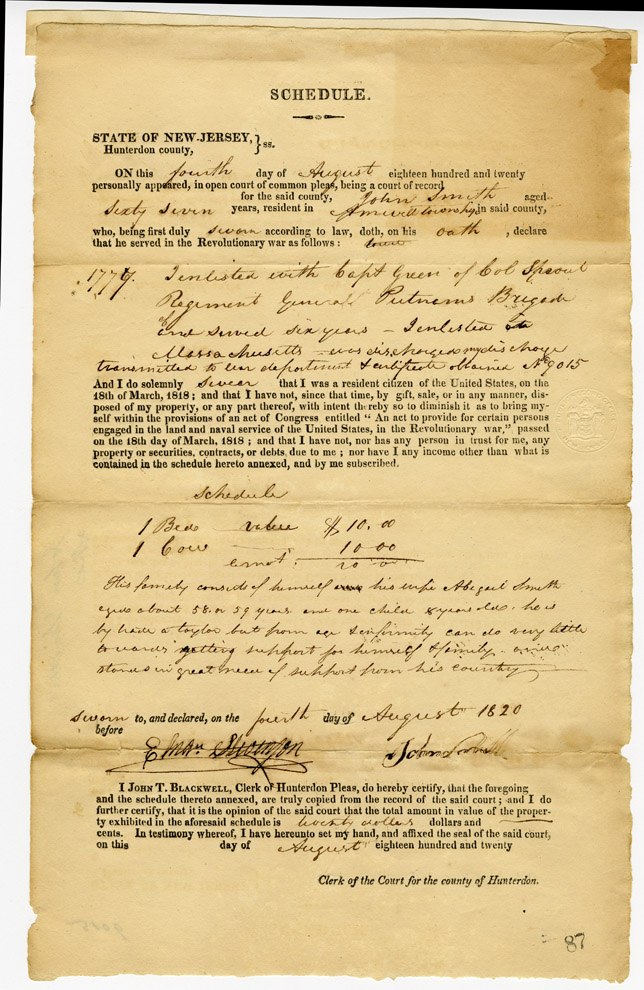 SCHEDULE.
STATE OF NEW-JERSEY, } ss.
Hunterdon county,
ON this fourth day of August eighteen hundred and twenty
personally appeared, in open court of common pleas, being a court of record
for the said county, John Smith aged
Sixty Seven years, resident in Amwell township, in said county,
who, being first duly sworn according to law, doth, on his oath , declare
that he served in the Revolutionary war as follows :
1777. I enlisted with Capt Green of Col Sprout
Regiment General Putnams Brigade
and served six years – I enlisted in
Massachusetts – was discharged my discharge
transmitted to war department & certificate obtained No 9015
And I do solemnly swear that I was a resident citizen of the United States, on the
18th of March, 1818 ; and that I have not, since that time, by gift, sale, or in any manner, dis-
posed of my property, or any part thereof, with intent thereby so to diminish it as to bring my-
self within the provisions of an act of Congress entitled “ An act to provide for certain persons
engaged in the land and naval service of the United States, in the Revolutionary war,” passed
on the 18th day of March, 1818 ; and that I have not, nor has any person in trust for me, any
property or securities, contracts, or debts, due to me ; nor have I any income other than what is
contained in the schedule hereto annexed, and by me subscribed.
Schedule
1 Bed – value $ 10.00
1 Cow – 10.00
amot. 20.00
His family consists of himself his wife Abigail Smith
aged about 58 or 59 years and one child 8 years old. he is
by trade a taylor but from age & infirmity can do very little
towards getting support for himself & family and
stands in great need of support from his country
sworn to, and declared, on the fourth day of August 1820
before
John Smith
I JOHN T. BLACKWELL, Clerk of Hunterdon Pleas, do hereby certify, that the foregoing
and the schedule thereto annexed, are truly copied from the record of the said court ; and I do
further certify, that it is the opinion of the said court that the total amount in value of the proper-
ty exhibited in the aforesaid schedule is twenty dollars dollars and
cents. In testimony whereof, I have hereunto set my hand, and affixed the seal of the said court,
on this day of August eighteen hundred and twenty
Clerk of the Court for the county of Hunterdon.
87